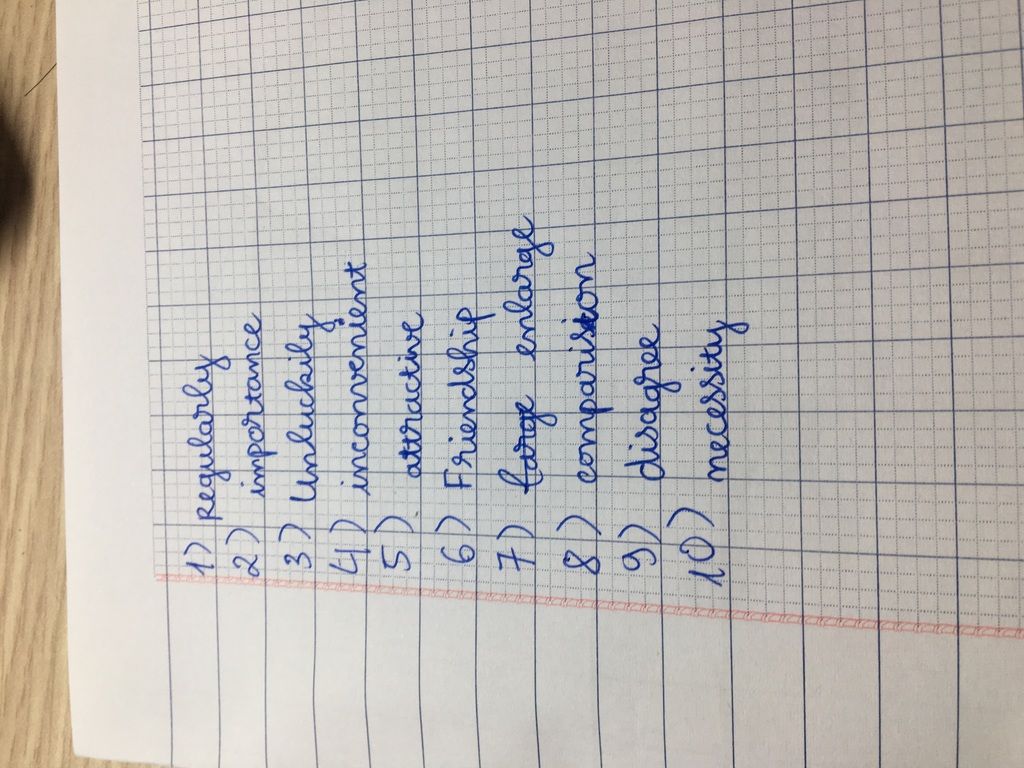 1) regularly
2) importance
3) Unluckily
4) inconvenient
5) attractive
6) Friendship
7) large enlarge
8) comparision
9) disagree
10) necessity